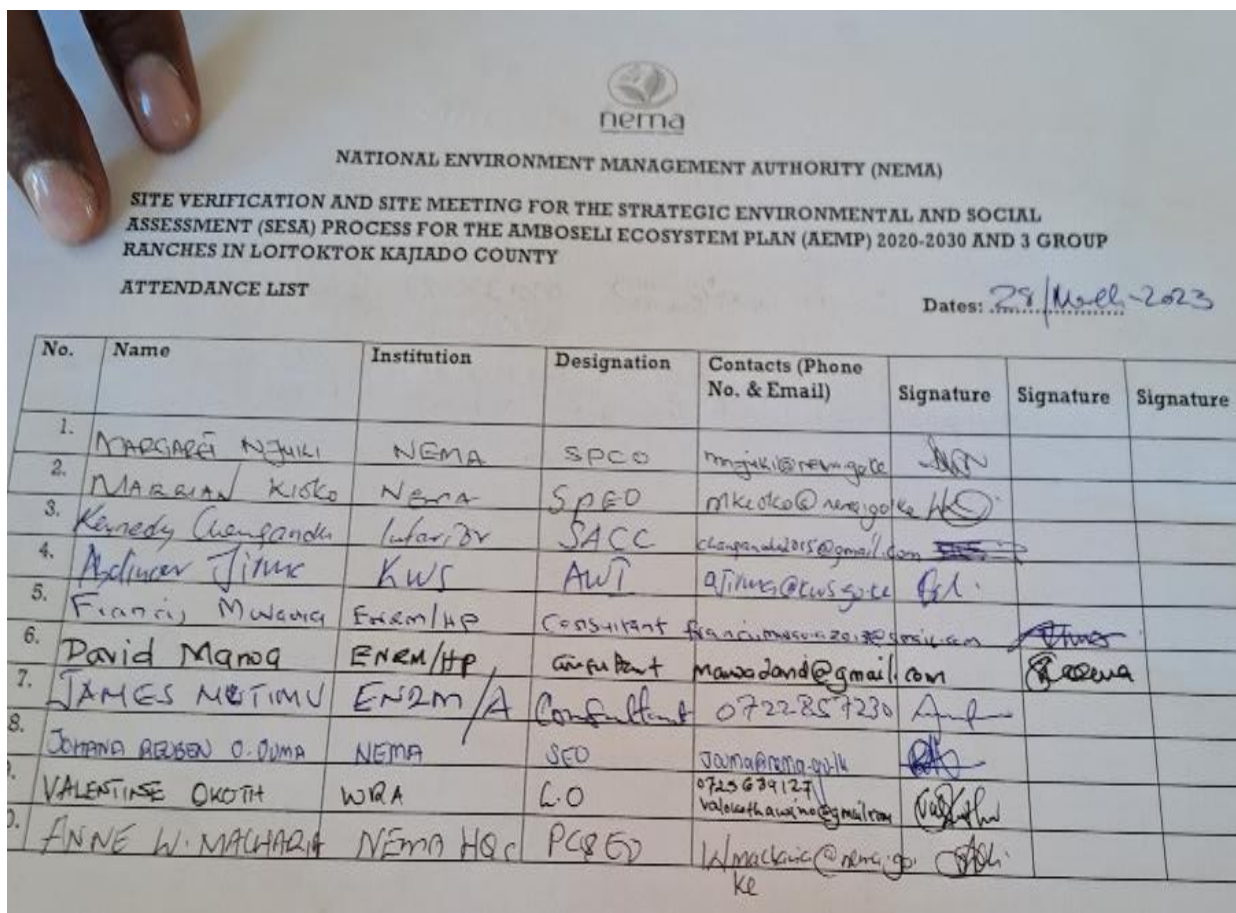 nema
NATIONAL ENVIRONMENT MANAGEMENT AUTHORITY (NEMA)
SITE VERIFICATION AND SITE MEETING FOR THE STRATEGIC ENVIRONMENTAL AND SOCIAL
ASSESSMENT (SESA) PROCESS FOR THE AMBOSELI ECOSYSTEM PLAN (AEMP) 2020-2030 AND 3 GROUP
RANCHES IN LOITOKTOK KAJIADO COUNTY
ATTENDANCE LIST
Dates: 28/March-2023
No. Name Institution Designation Contacts (Phone No. & Email) Signature Signature Signature
1. MARGARET NJUKI NEMA SPCO mnjuki@nema.go.ke
2. MARRIAN KIOKO NEMA SPEO mkioko@nema.go.ke
3. Kennedy SACC
4. Jirma KWS AWI ajirma@kws.go.ke
5. Francis Mwaura ENRM/HP Consultant
6. David Manoa ENRM/HP Consultant
7. JAMES MUTIMU ENRM/A Consultant 0722857230
8. JOHANA REUBEN O. OUMA NEMA SEO
VALENTINE OKOTH WRA C.O
ANNE W. MACHARIA NEMA HQs
ke